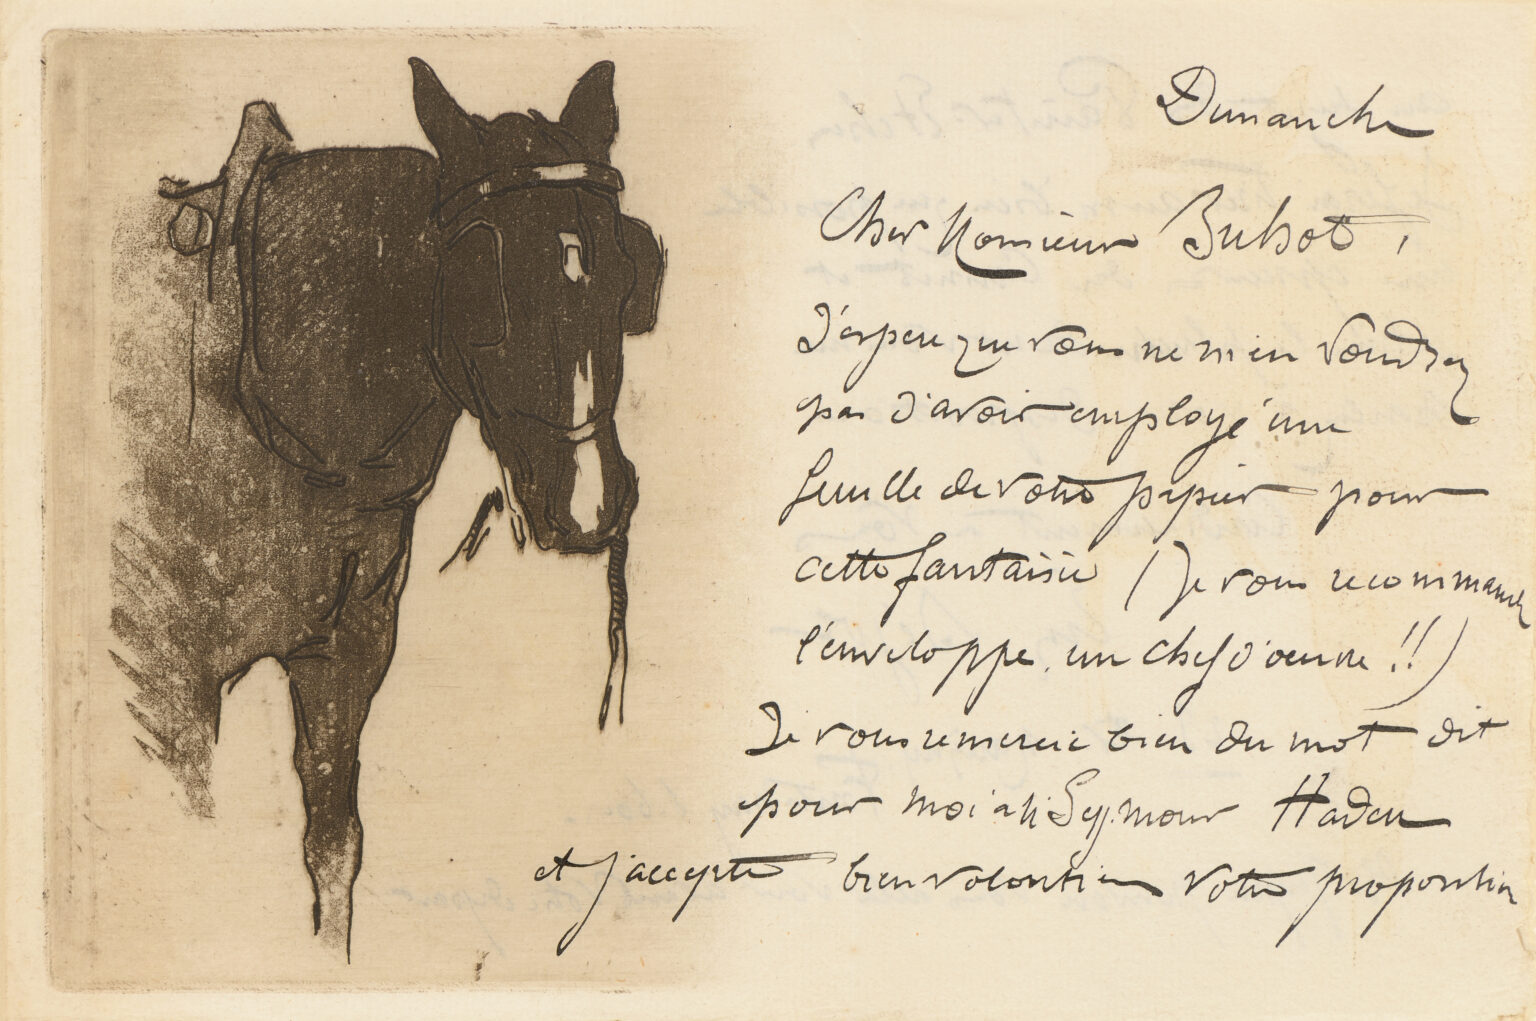 Dimanche
Cher Monsieur Buhot,
J'espère que vous ne m'en voudrez
pas d'avoir employé une
feuille de votre papier pour
cette fantaisie (Je vous recommande
l'enveloppe, un chef d'oeuvre !!)
Je vous remercie bien du mot dit
pour moi à M. Seymour Haden
et j'accepte bien volontiers votre proposition